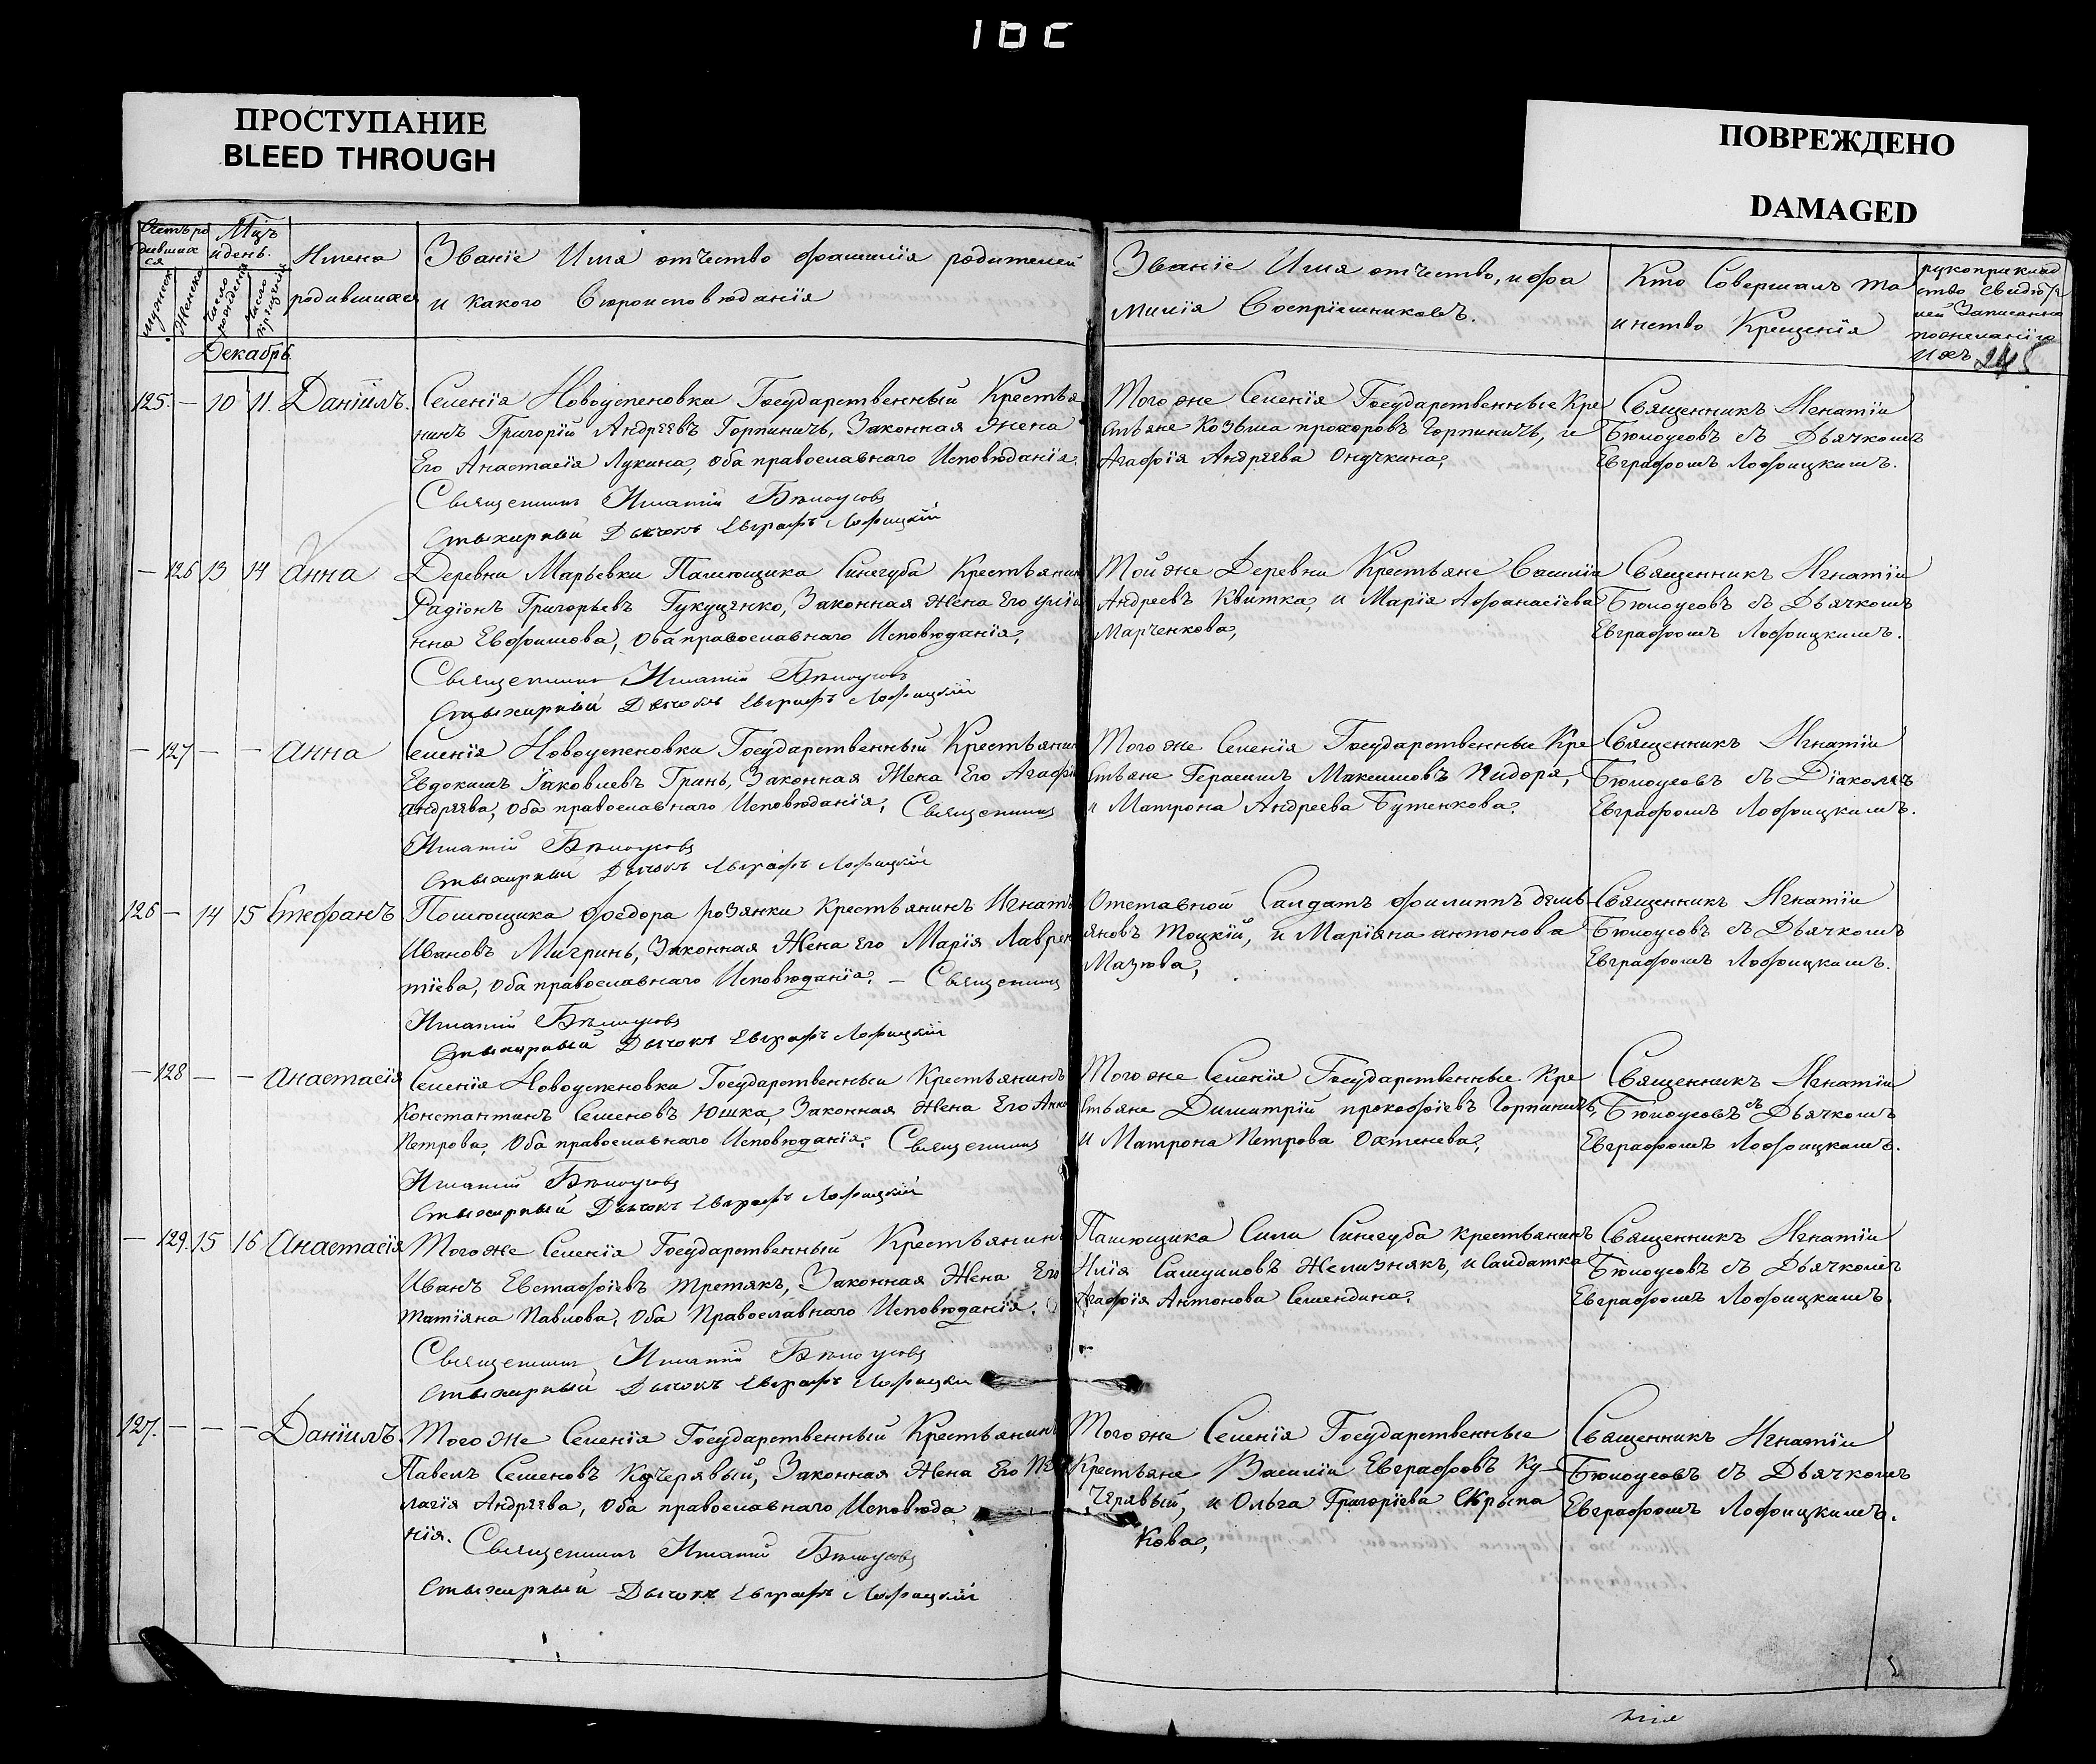 ПРОСТУПАНИЕ
BLEED THROUGH
ПОВРЕЖДЕНО
DAMAGED
Счетъ ро
дивших
ся
Мцъ
и день.
мужск
Женска
Число рождения
Число крещения
Имена
родившихся
Званіе Имя отчество фамилія родителей
и какого Вѣроисповѣданія
Званіе Имя отчество, и фа
милія Воспріемниковъ.
Кто Совершалъ та
инство Крещенія
рукоприклад
ство свидѣте
лей Записанно
по желанію
ихъ
Декабрь
125. — 10 11. Даніилъ.
Селенія Новоуспеновки Государственный Крестья
нинъ Григорій Андреевъ Горпиничъ, Законная Жена
Его Анастасія Лукина, Оба православнаго Исповѣданія.
Священникъ Игнатій Бѣлоусовъ
Стыхирный Дьячокъ Евграфъ Лофицкій
Того же Селенія Государственные Кре
стьяне Козьма прохоровъ Горпиничъ, и
Агафія Андреева Онучкина,
Священникъ Игнатіи
Бѣлоусовъ съ Дьячкомъ
Евграфомъ Лофицкимъ.
— 126 13 14 Анна
Деревни Марьевки Памѣщика Синегуба Крестьянин
Радіонъ Григорьевъ Гукущенко, Законная Жена Его Уліа
нна Евфимова, Оба православнаго Исповѣданія,
Священникъ Игнатій Бѣлоусовъ
Стыхирный Дьячокъ Евграфъ Лофицкій
Той же Деревни Крестьяне Василіи
Андреевъ Квитка, и Марія Афанасіева
Марченкова,
Священникъ Игнатіи
Бѣлоусовъ съ Дьячкомъ
Евграфомъ Лофицкимъ.
— 127 — — Анна
Селенія Новоуспеновки Государственный Крестьянин
Евдокимъ Іаковлевъ Грань, Законная Жена Его Агафія
Андреева, Оба православнаго Исповѣданія, Священникъ
Игнатій Бѣлоусовъ
Стыхирный Дьячокъ Евграфъ Лофицкій
Того же Селенія Государственные Кре
стьяне Герасимъ Максимовъ Нидоря,
и Матрона Андреева Бутенкова,
Священникъ Игнатіи
Бѣлоусовъ съ Діакомъ
Евграфомъ Лофицкимъ.
126 — 14 15 Стефанъ
Помѣщика Федора розянки Крестьянинъ Игнатъ
Ивановъ Мигринь, Законная Жена его Марія Лаврен
тіева, Оба православнаго Исповѣданія, — Священникъ
Игнатій Бѣлоусовъ
Стыхирный Дьячокъ Евграфъ Лофицкій
Отставной Салдатъ Филиппъ демь
яновъ Тоцкій, и Маріяна антонова
Мазюва,
Священникъ Игнатіи
Бѣлоусовъ съ Дьячкомъ
Евграфомъ Лофицкимъ.
— 128 — — Анастасія
Селенія Новоуспеновки Государственныи Крестьянинъ
Константинъ Семеновъ Юшка, Законная Жена Его Анна
Петрова, Оба православнаго Исповѣданія, Священникъ
Игнатій Бѣлоусовъ
Стыхирный Дьячокъ Евграфъ Лофицкій
Того же Селенія Государственные Кре
стьяне Димитрій прокофіевъ Горпиничъ,
и Матрона Петрова Охтенева,
Священникъ Игнатіи
Бѣлоусовъ съ Дьячкомъ
Евграфомъ Лофицкимъ.
— 129. 15 16 Анастасія
Того же Селенія Государственный Крестьянинъ
Иванъ Евстафіевъ Третякъ, Законная Жена Его
Татіяна Павлова, Оба Православнаго Исповѣданія.
Священникъ Игнатій Бѣлоусовъ
Стыхирный Дьячокъ Евграфъ Лофицкій
Памѣщика Сили Синегуба крестьянинъ
Илія Самуиловъ Желизнякъ, и Салдатка
Агафія Антонова Семендина,
Священникъ Игнатіи
Бѣлоусовъ съ Дьячкомъ
Евграфомъ Лофицкимъ.
127. — — — Даніилъ.
Того Же Селенія Государственный Крестьянинъ
Павелъ Семеновъ Кучерявый, Законная Жена Его Пе
лагія Андреева, Оба православнаго Исповѣда
нія. Священникъ Игнатій Бѣлоусовъ
Стыхирный Дьячокъ Евграфъ Лофицкій
Того же Селенія Государственные
Крестьяне Василіи Евграфовъ Ку-
черявый, и Ольга Григоріева Скрыпа
кова,
Священникъ Игнатіи
Бѣлоусовъ съ Дьячкомъ
Евграфомъ Лофицкимъ.